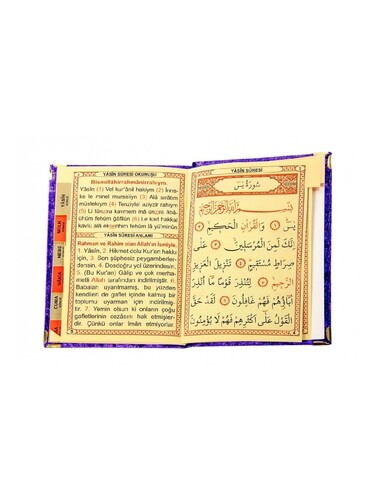 YÂSÎN SÛRESİ OKUNUŞU
Bismillâhirrahmânirrahıym.
Yâsîn (1) Vel kur'ânil hakiym (2) İnne-
ke le minel murseliyn (3) Alâ sırâtım
müstekıym (4) Tenziylel aziyzir rahiym
(5) Li tünzira kavmem mâ ünzira âbâ-
ühüm fehüm ğâfilun (6) Le kad hakkal
kavlü alâ ekserihim fehüm lâ yü'minun
YÂSÎN SÛRESİ ANLAMI
Rahman ve Rahim olan Allah'ın ismiyle.
1. Yâsîn. 2. Hikmet dolu Kur'an hakkı
için, 3. Sen şüphesiz peygamberler-
densin. 4. Dosdoğru yol üzerindesin.
5. (Bu Kur'an) Gâlip ve çok merha-
metli Allah tarafından indirilmiştir. 6.
Babaları uyarılmamış, bu yüzden
kendileri de gaflet içinde kalmış bir
toplumu uyarman için indirilmiş-
tir. 7. Yemin olsun ki onların çoğu
gafletlerinin cezasını hak etmişler-
dir. Çünkü onlar îman etmiyorlar.
YÂSİN
MÜLK
NEBE
VÂKIA
CUMA
YÂSÎN SÛRESİ
سُورَةُ يٰسٓ
بِسْمِ اللّٰهِ الرَّحْمٰنِ الرَّحِيمِ
يٰسٓ ﴿١﴾ وَالْقُرْاٰنِ الْحَكِيمِ ﴿٢﴾
اِنَّكَ لَمِنَ الْمُرْسَلِينَ ﴿٣﴾ عَلٰى
صِرَاطٍ مُسْتَقِيمٍ ﴿٤﴾ تَنْزِيلَ الْعَزِيزِ
الرَّحِيمِ ﴿٥﴾ لِتُنْذِرَ قَوْمًا مَٓا اُنْذِرَ
اٰبَٓاؤُهُمْ فَهُمْ غَافِلُونَ ﴿٦﴾ لَقَدْ حَقَّ
الْقَوْلُ عَلٰٓى اَكْثَرِهِمْ فَهُمْ لَا يُؤْمِنُونَ